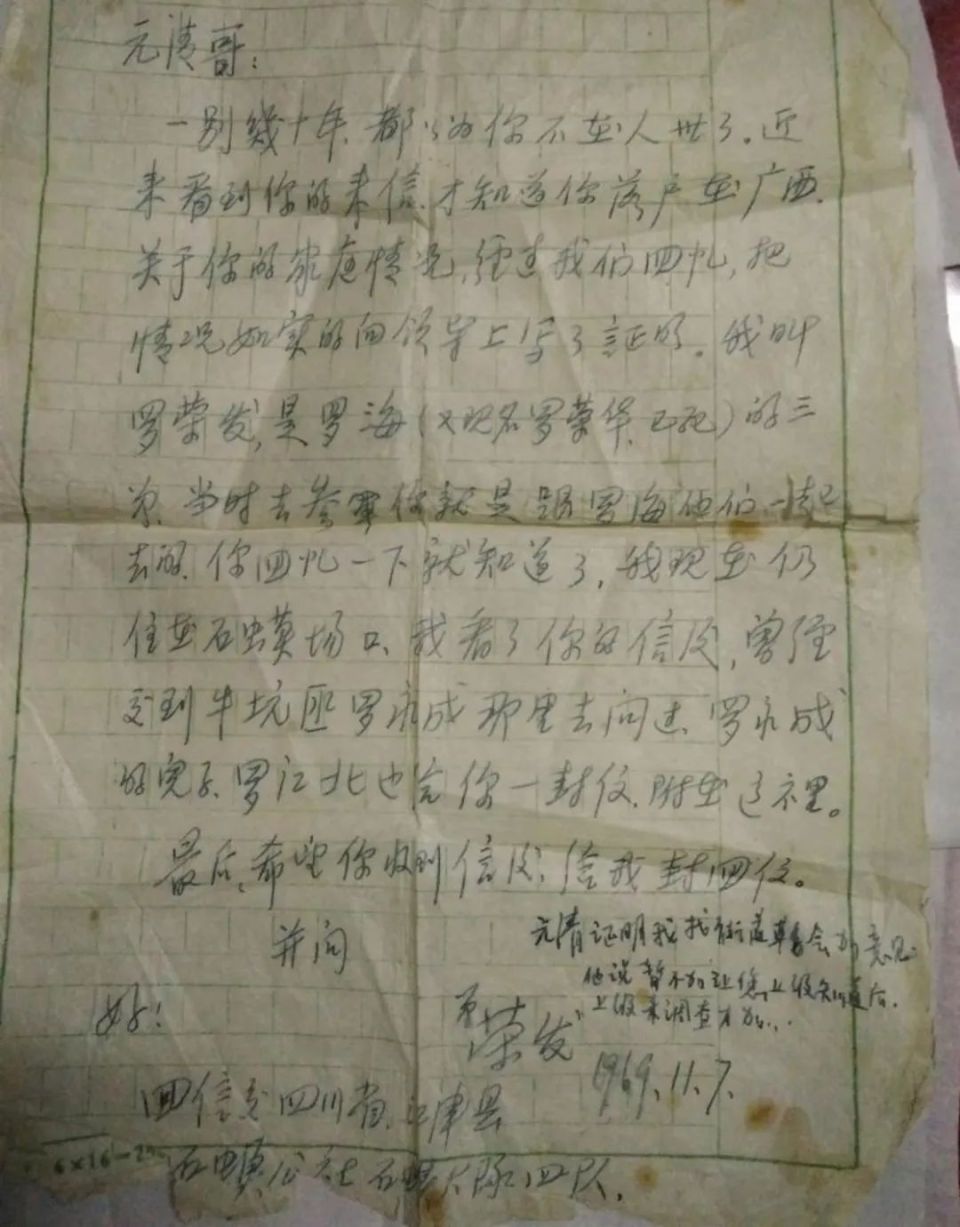 元清哥：
一别幾十年、都以为你不在人世了。近
来看到你的来信、才知道你落户在广西、
关于你的家庭情况，经过我们回忆，把
情况如实的向领导上写了証明。我叫
罗荣发，是罗海（又现名罗荣华、已死）的三
弟、当时去参軍你就是跟罗海他们一起
去的、你回忆一下就知道了，我现在仍
住在石蟆场口、我看了你的信后，曾经
交到牛坑匝罗永成那里去问过、罗永成
的完子、罗江北也给你一封信、附在这里。
最后，希望你收到信后，给我封回信。
并问
好！
弟荣发
1969.11.7.
元清证明我找街道革委会加意见
他说暂不加让您上级知道后.
上级来调查才加...
回信交四川省江津县
石蟆公社石蟆大队四队.
6×16-2